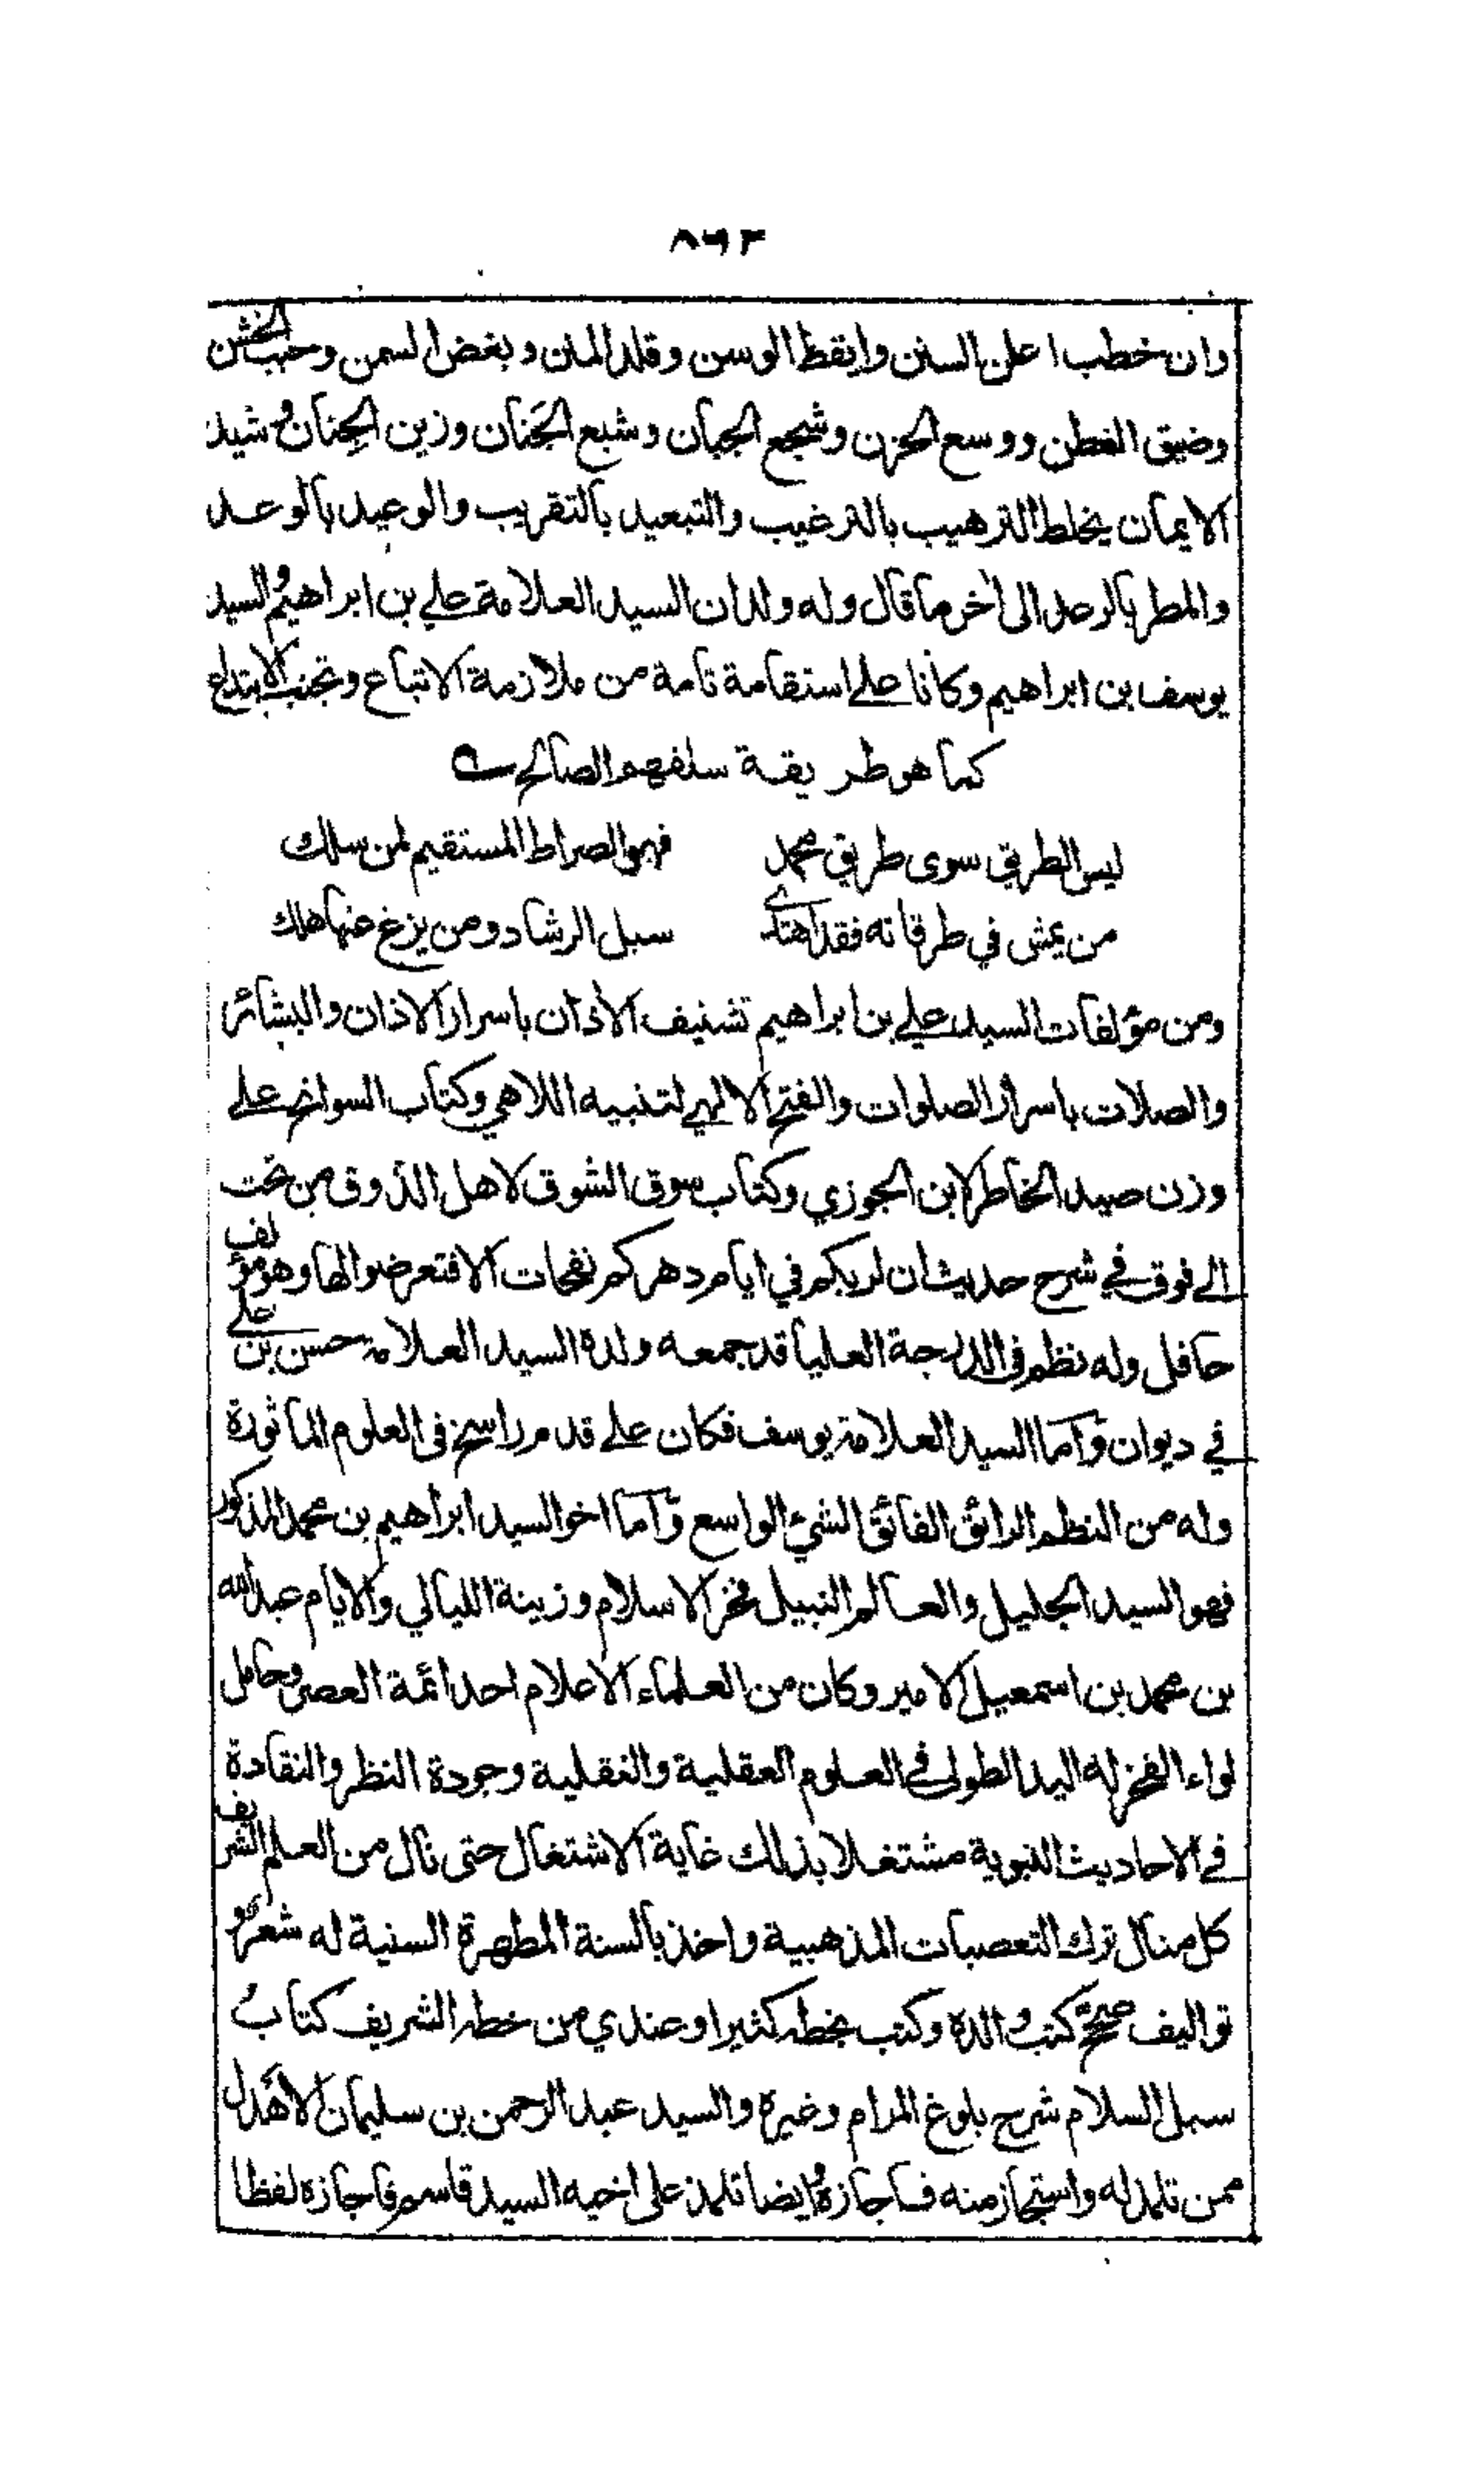 ٨٦٣
وان خطب اعلن السنن وايقظ الوسن وقلد المنن وبغض السمن وحبب الخشن
وضيق العطن ووسع الحزن وشجع الجبان وشبع الجَنان وزين الجِنان وشيد
الايمان يخلط الترهيب بالترغيب والتبعيد بالتقريب والوعيد بالوعد
والمطر بالرعد الى اٰخر ما قال وله ولدان السيد العلامة علي بن ابراهيم والسيد
يوسف بن ابراهيم وكانا على استقامة تامة من ملازمة الاتباع وتجنب الابتداع
كما هو طريقة سلفهم الصالح
ليس الطريق سوى طريق محمد فهو الصراط المستقيم لمن سلك
من يمش في طرقاته فقد اهتدى سبل الرشاد ومن يزغ عنها هلك
ومن مؤلفات السيد علي بن ابراهيم تشنيف الآذان باسرار الاذان والبشائر
والصلات باسرار الصلوات والفتح الالهي لتنبيه اللاهي وكتاب السوانح على
وزن صيد الخاطر لابن الجوزي وكتاب سوق الشوق لاهل الذوق من تحت
الى فوق في شرح حديث ان لربكم في ايام دهركم نفحات الا فتعرضوا لها وهو مؤلف
حافل وله نظم في الدرجة العليا قد جمعه ولده السيد العلامة حسن بن علي
في ديوان واما السيد العلامة يوسف فكان على قدم راسخ في العلوم الماثورة
وله من النظم الرائق الفائق الشيء الواسع واما اخو السيد ابراهيم بن محمد المذكور
فهو السيد الجليل والعالم النبيل فخر الاسلام وزينة الليالي والايام عبد الله
بن محمد بن اسمعيل الامير وكان من العلماء الاعلام احد ائمة العصر وحامل
لواء الفخر له اليد الطولى في العلوم العقلية والنقلية وجودة النظر والنقادة
في الاحاديث النبوية مشتغلا بذلك غاية الاشتغال حتى نال من العلم الشريف
كل منال ترك التعصبات المذهبية واخذ بالسنة المطهرة السنية له شعر و
تواليف صحح كتب والده وكتب بخطه كثيرا وعندي من خطه الشريف كتابُ
سبل السلام شرح بلوغ المرام وغيره والسيد عبد الرحمن بن سليمان الأهدل
ممن تلمذ له واستجاز منه فاجازه وايضا تلمذ على اخيه السيد قاسم فاجازه لفظا